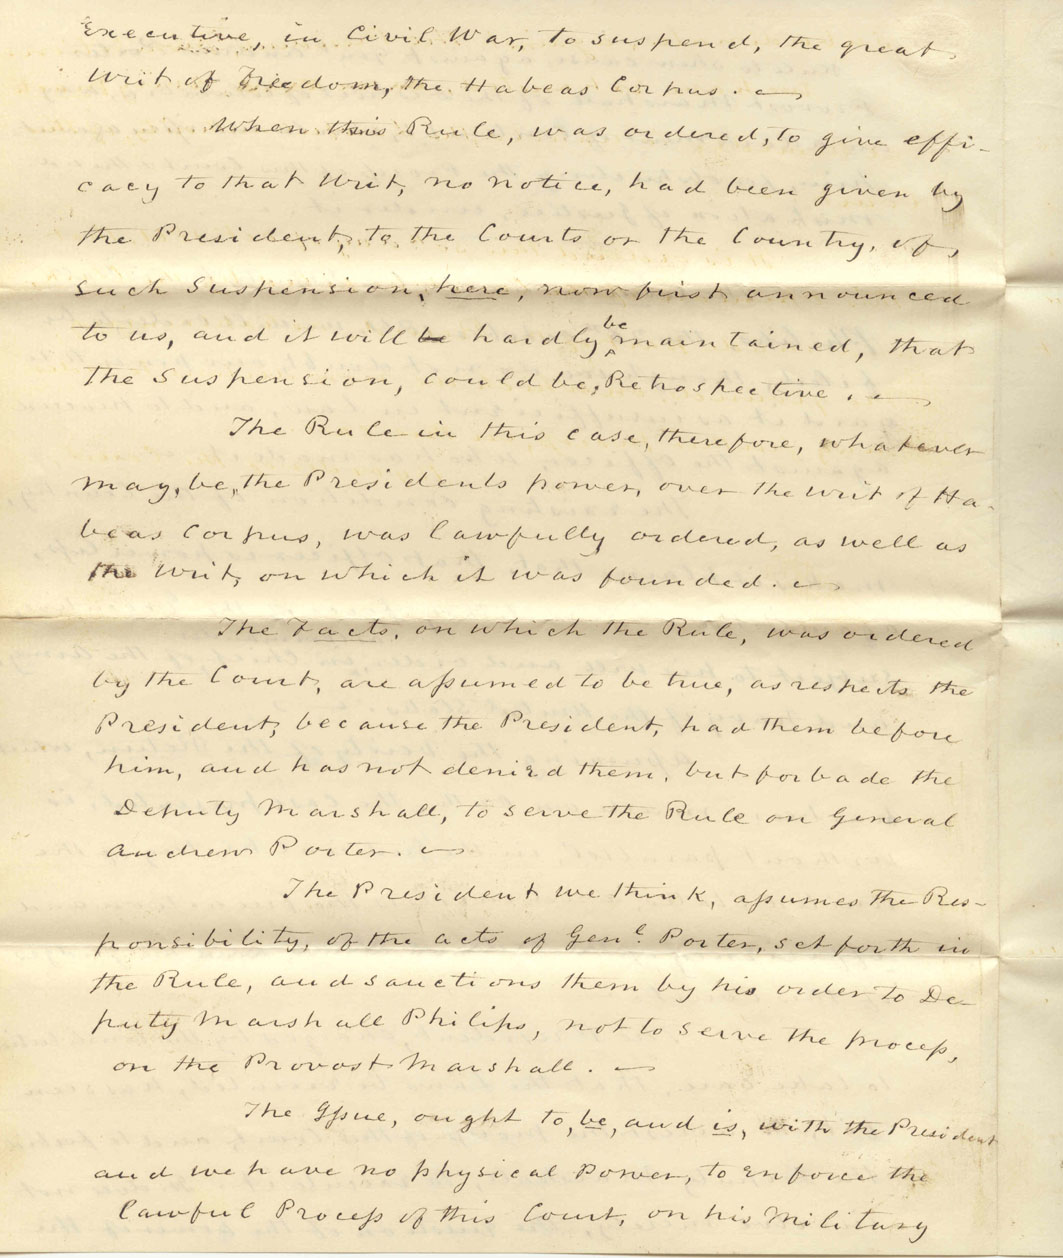 Executive, in Civil War, to suspend, the great
Writ of Freedom, the Habeas Corpus.
When this Rule, was ordered, to give effi-
cacy to that Writ, no notice, had been given by
the President, to the Courts or the Country, of,
such Suspension, here, now first announced
to us, and it will be hardly be maintained, that
the Suspension, could be, Retrospective.
The Rule in this case, therefore, whatever
may, be, the Presidents power, over the writ of Ha-
beas Corpus, was lawfully ordered, as well as
the Writ, on which it was founded.
The Facts, on which the Rule, was ordered
by the Court, are aſsumed to be true, as respects the
President, because the President, had them before
him, and has not denied them, but forbade the
Deputy Marshall, to serve the Rule on General
Andrew Porter.
The President we think, aſsumes the Res-
ponsibility, of the acts of Genl. Porter, set forth in
the Rule, and sanctions them by his order to De-
puty Marshall Philips, not to serve the proceſs,
on the Provost Marshall.
The Iſsue, ought to, be, and is, with the President
and we have no physical Power, to enforce the
lawful Proceſs of this Court, on his Military